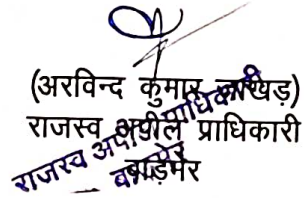 (अरविन्द कुमार जाखड़)
राजस्व अपील प्राधिकारी
बाड़मेर
राजस्व अपील प्राधिकारी
बाड़मेर